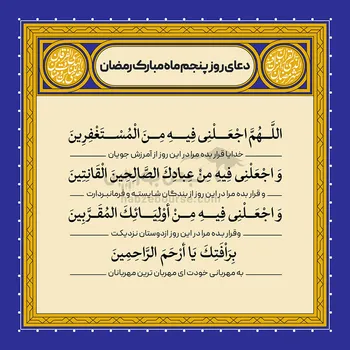 دعای روز پنجم ماه مبارک رمضان
اللَّهُمَّ اجْعَلْنِی فِیهِ مِنَ الْمُسْتَغْفِرِینَ
خدایا قرار بده مرا در این روز از آمرزش جویان
وَ اجْعَلْنِی فِیهِ مِنْ عِبَادِکَ الصَّالِحِینَ الْقَانِتِینَ
و قرار بده مرا در این روز از بندگان شایسته و فرمانبردارت
وَ اجْعَلْنِی فِیهِ مِنْ أَوْلِیَائِکَ الْمُقَرَّبِینَ
وقرار بده مرا در این روز ازدوستان نزدیکت
بِرَأْفَتِکَ یَا أَرْحَمَ الرَّاحِمِینَ
به مهربانی خودت ای مهربان ترین مهربانان